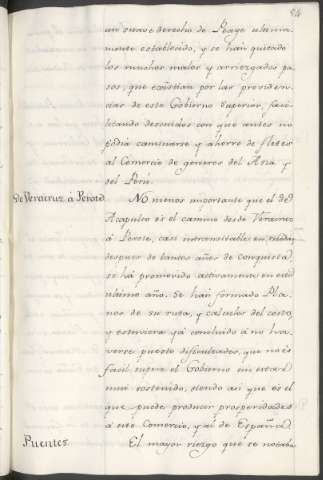 84
un suave derecho de Peage ultima-
mente establecido, y se han quitado
los muchos malos y arriezgados pa-
sos, que existian por las providen-
cias de este Gobierno Superior, faci-
litando descuidos con que antes no
podia caminarse y ahorro de fletes
al Comercio de generos del Asia y
del Perú.
De Veracruz á Perote.
No menos importante que el de
Acapulco es el camino desde Veracruz
á Perote, casi intransitable en
despues de tantos años de conquista,
se há promovido activamente en este
ultimo año. Se han formado Pla-
nos de su ruta, y calculos del costo,
y estuviera yá concluido á no ha-
verse puesto dificultades, que no es
facil supere el Gobierno en
mui sostenido, siendo asi que es el
que puede producir prosperidades
á este Comercio, y al de España.
Puentes.
El mayor riezgo que se notaba